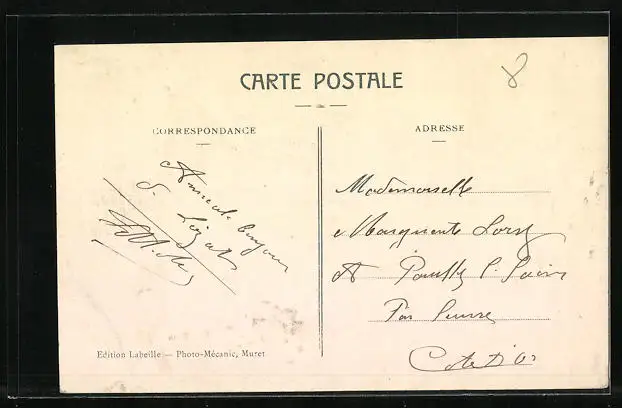 8
CARTE POSTALE
CORRESPONDANCE
ADRESSE
Amicale bonjour
de Lézat
Mademoiselle
Marguerite Loisy
A Pouilly s. Saône
Par Seurre
Cote d'Or
Edition Labeille — Photo-Mécanic, Muret